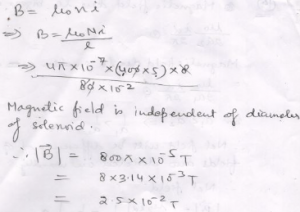 B = μ₀ni
⇒ B = μ₀Ni / l
⇒ 4π×10⁻⁷×(400×5)×8 / 80×10⁻²
Magnetic field is independent of diameter
of solenoid.
∴ |B⃗| = 800π×10⁻⁵T
= 8×3.14×10⁻³T
= 2.5×10⁻²T